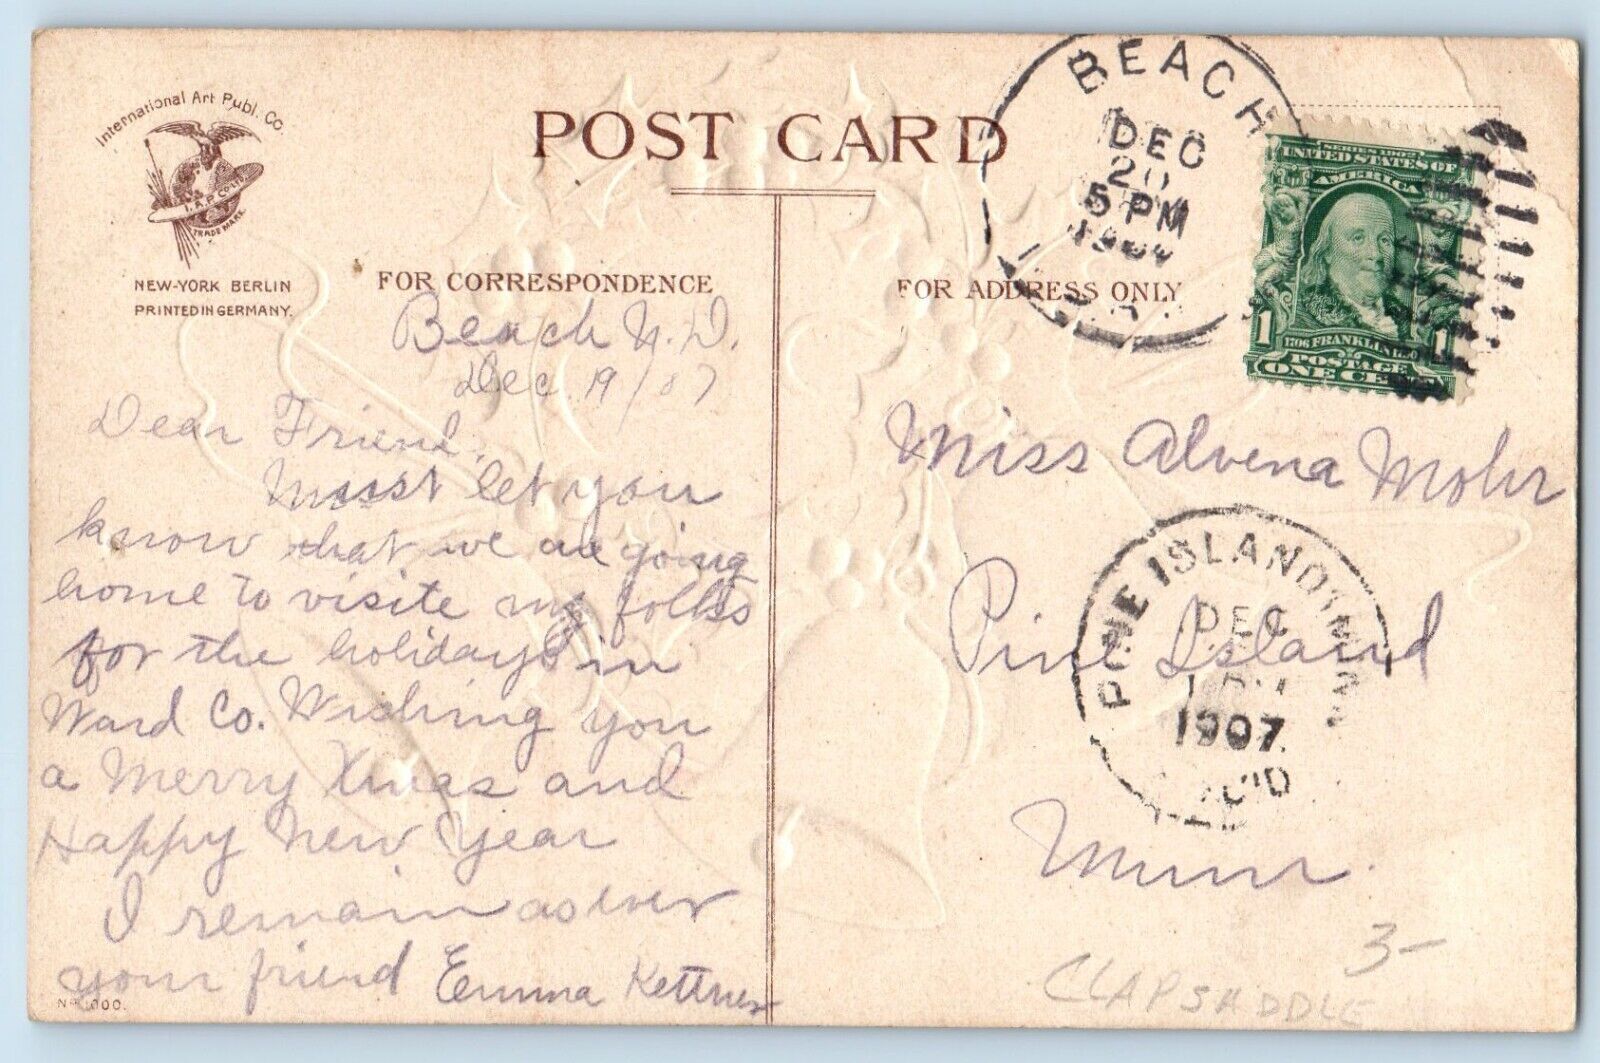 International Art Publ. Co.
I.A.P. Co. Ltd
TRADE MARK.
NEW-YORK BERLIN
PRINTED IN GERMANY.
POST CARD
FOR CORRESPONDENCE
FOR ADDRESS ONLY
BEACH
DEC
20
5 PM
UNITED STATES OF
AMERICA
1 1706 FRANKLIN 1790 1
POSTAGE
ONE CE
Beach N. D.
Dec 19/07
Dear Friend,
Must let you
know that we are going
home to visite my folks
for the holidays in
Ward Co. Wishing you
a Merry Xmas and
Happy New Year
I remain as ever
your friend Emma Kettner
No 1000.
Miss Alvena Mohr
Pine Island
Minn.
PINE ISLAND, MINN.
DEC
1907
REC'D
3-
CLAPSADDLE